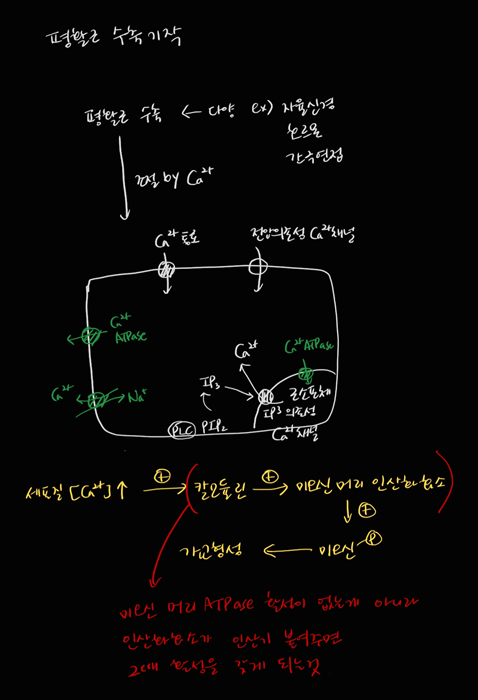 평활근 수축기작
평활근 수축 ← 다양 ex) 자율신경
호르몬
간극연접
조절 by Ca²⁺
Ca²⁺ 통로
전압의존성 Ca²⁺채널
Ca²⁺
ATPase
Ca²⁺
Na⁺
Ca²⁺
Ca²⁺ATPase
IP₃
근소포체
IP³ 의존성
Ca²⁺채널
PLC
PIP₂
세포질 [Ca²⁺]↑ → ⊕ (칼모듈린 → ⊕ 미오신 머리 인산화효소)
⊕
가교형성 ← 미오신 Ⓟ
미오신 머리 ATPase 활성이 없는게 아니라
인산화효소가 인산기 붙여주면
그때 활성을 갖게 되는것